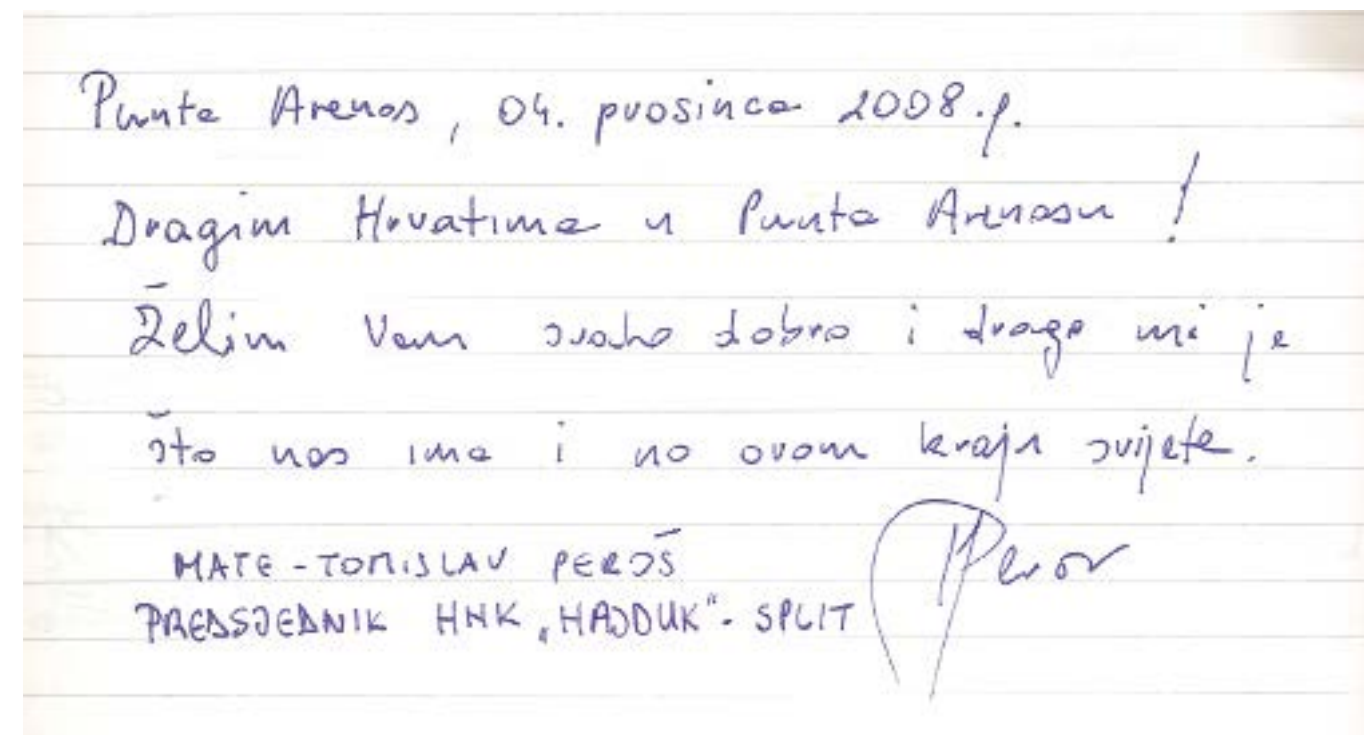 Punta Arenas, 04. prosinca 2008.g.
Dragim Hrvatima u Punta Arenasu!
Želim Vam svako dobro i drago mi je
što nas ima i na ovom kraju svijeta.
MATE-TOMISLAV PEROŠ
PREDSJEDNIK HNK „HAJDUK"- SPLIT